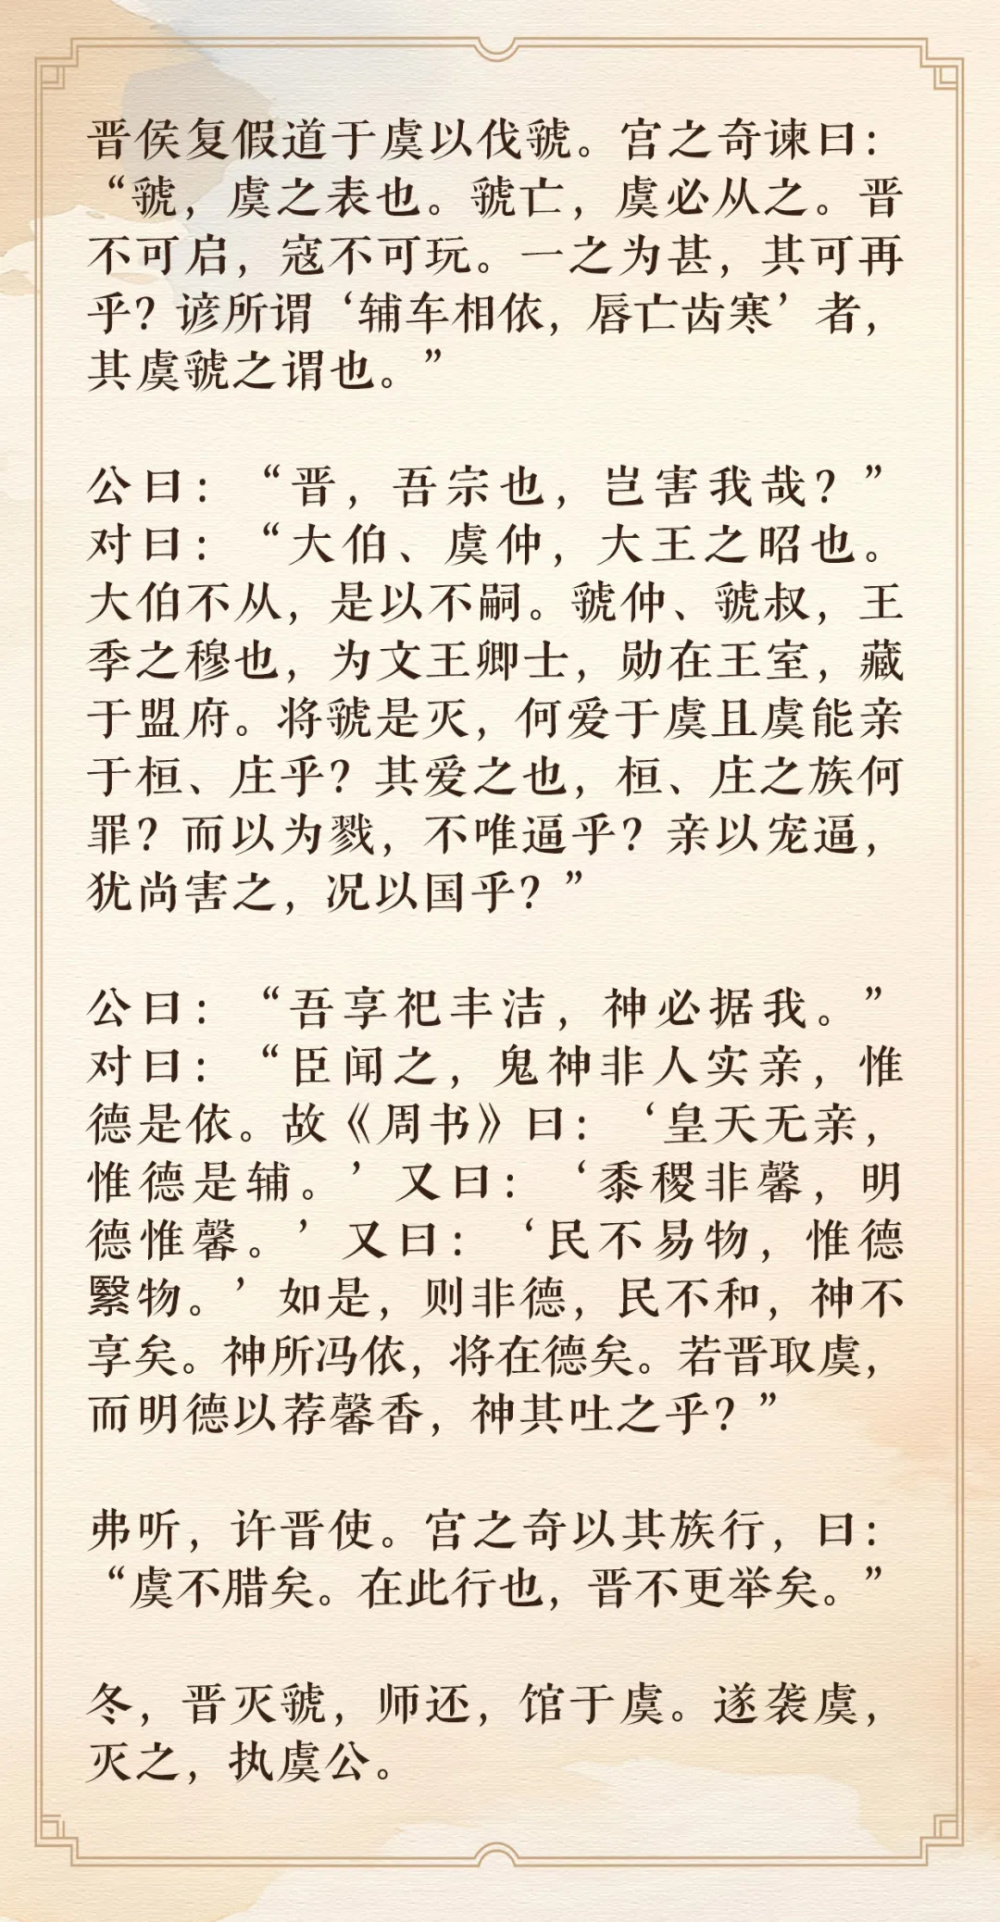 晋侯复假道于虞以伐虢。宫之奇谏曰：
“虢，虞之表也。虢亡，虞必从之。晋
不可启，寇不可玩。一之为甚，其可再
乎？谚所谓‘辅车相依，唇亡齿寒’者，
其虞虢之谓也。”
公曰：“晋，吾宗也，岂害我哉？”
对曰：“大伯、虞仲，大王之昭也。
大伯不从，是以不嗣。虢仲、虢叔，王
季之穆也，为文王卿士，勋在王室，藏
于盟府。将虢是灭，何爱于虞且虞能亲
于桓、庄乎？其爱之也，桓、庄之族何
罪？而以为戮，不唯逼乎？亲以宠逼，
犹尚害之，况以国乎？”
公曰：“吾享祀丰洁，神必据我。”
对曰：“臣闻之，鬼神非人实亲，惟
德是依。故《周书》曰：‘皇天无亲，
惟德是辅。’又曰：‘黍稷非馨，明
德惟馨。’又曰：‘民不易物，惟德
繄物。’如是，则非德，民不和，神不
享矣。神所冯依，将在德矣。若晋取虞，
而明德以荐馨香，神其吐之乎？”
弗听，许晋使。宫之奇以其族行，曰：
“虞不腊矣。在此行也，晋不更举矣。”
冬，晋灭虢，师还，馆于虞。遂袭虞，
灭之，执虞公。